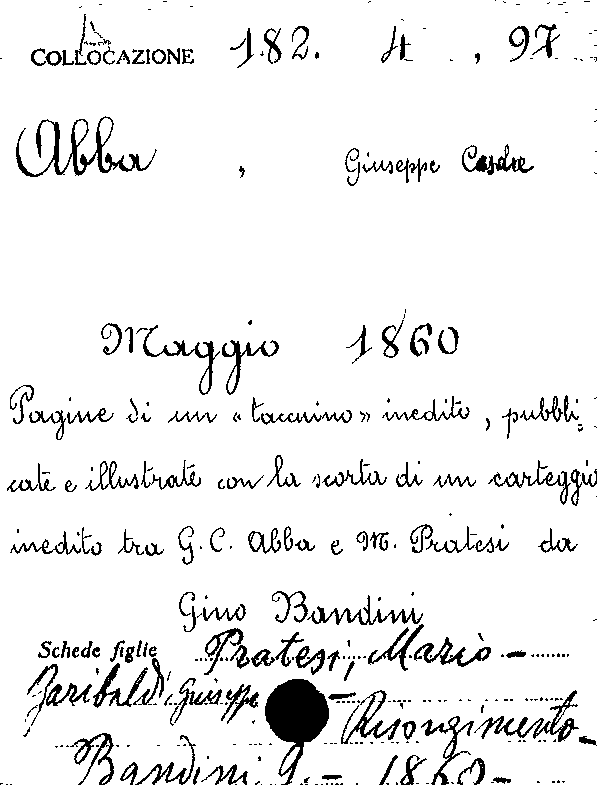 COLLOCAZIONE 182. 4 , 97
Abba , Giuseppe Cesare
Maggio 1860
Pagine di un « taccuino » inedito, pubbli=
cate e illustrate con la scorta di un carteggio
inedito tra G. C. Abba e M. Pratesi da
Gino Bandini
Schede figlie Pratesi, Mario —
Garibaldi, Giuseppe — Risorgimento —
Bandini G. — 1860 —